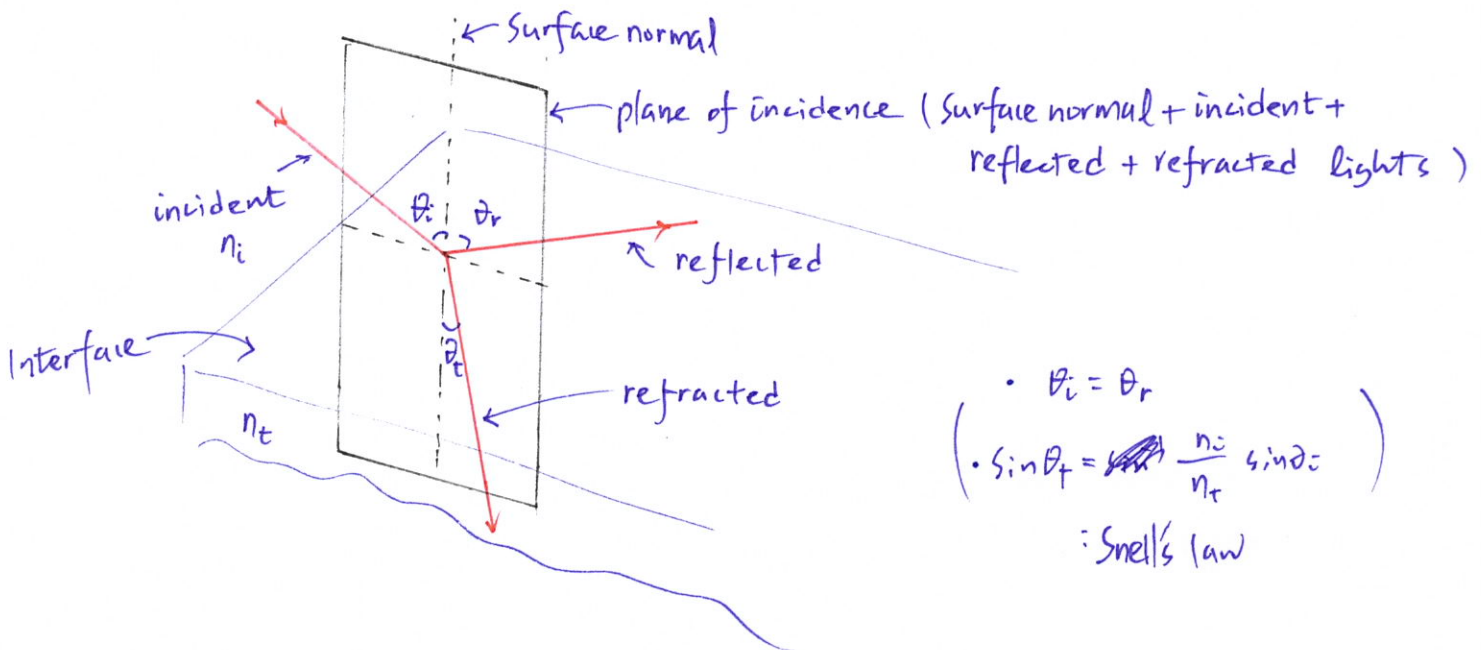 ← Surface normal
← plane of incidence (surface normal + incident +
reflected + refracted lights)
incident
nᵢ
θᵢ θᵣ
reflected
Interface
θₜ
refracted
nₜ
· θᵢ = θᵣ
· sinθₜ = nᵢ/nₜ sinθᵢ
: Snell's law